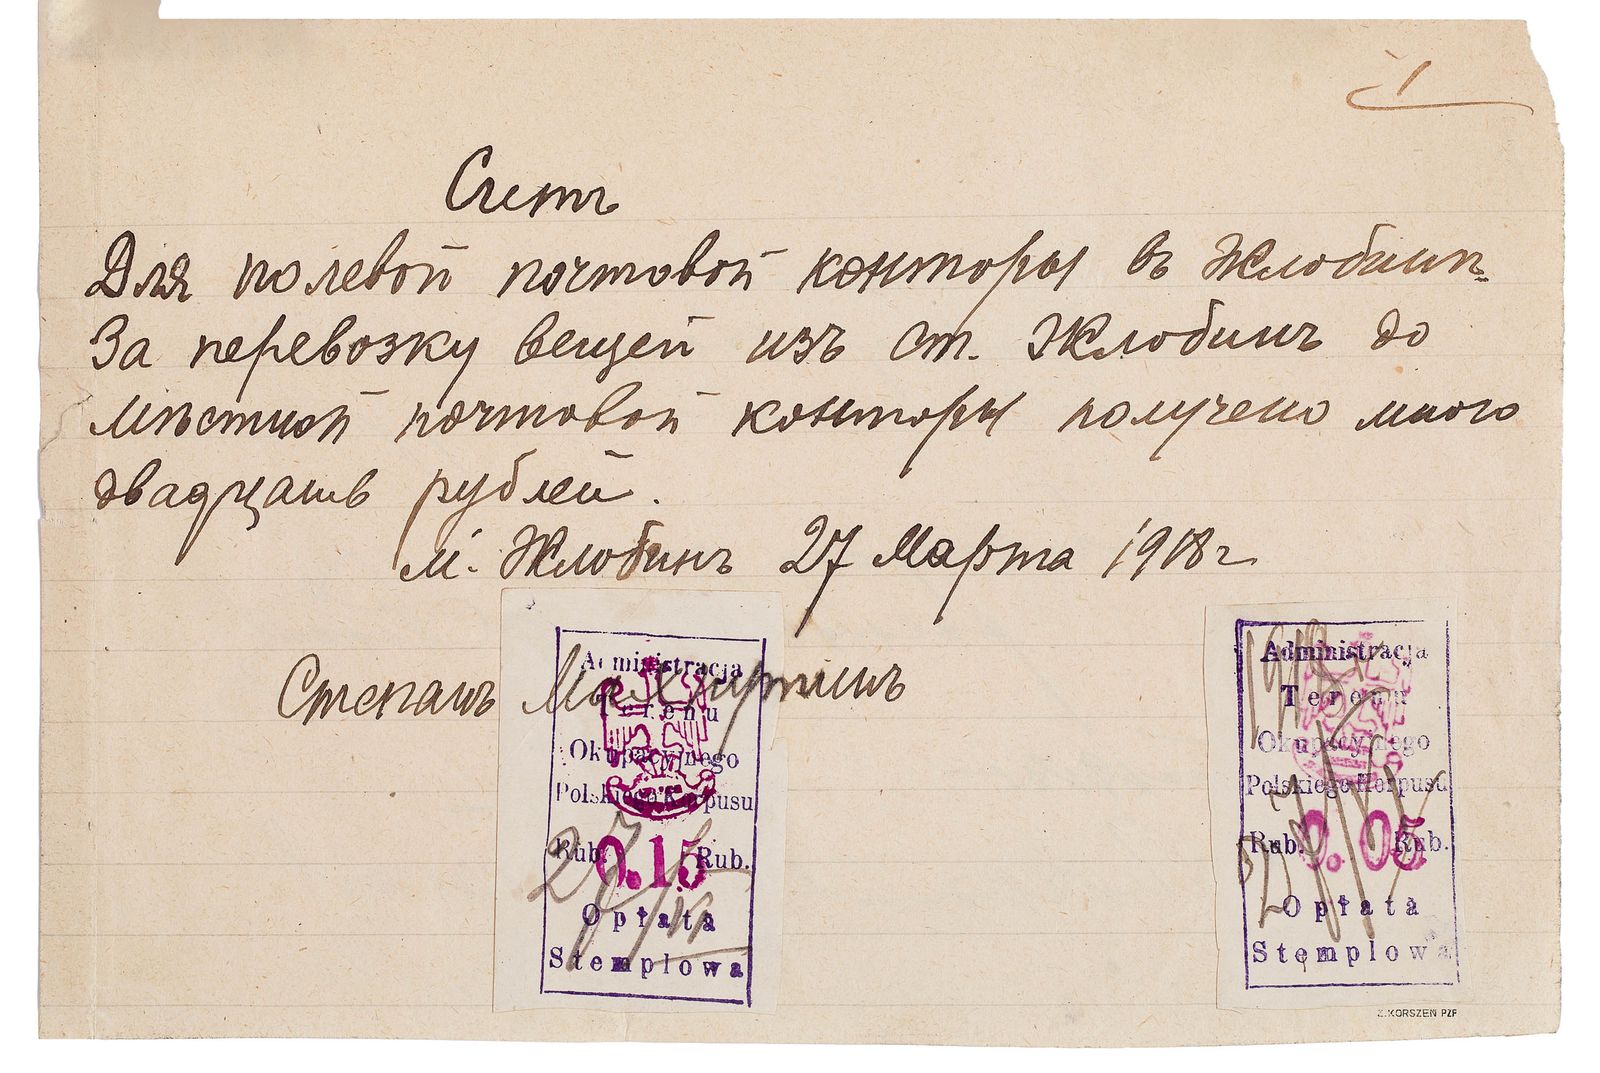 1
Счетъ
Для полевой почтовой конторы въ Жлобинѣ
За перевозку вещей изъ ст. Жлобинъ до
мѣстной почтовой конторы получено мною
двадцать рублей.
м. Жлобинъ 27 Марта 1918 г
Степанъ
Administracja
Terenu
Okupacyjnego
Polskiego Korpusu
Rub. 0.15 Rub.
Opłata
Stemplowa
27
Administracja
Terenu
Okupacyjnego
Polskiego Korpusu
Rub. 0.05 Rub.
Opłata
Stemplowa
1918
Z. KORSZEŃ PZF